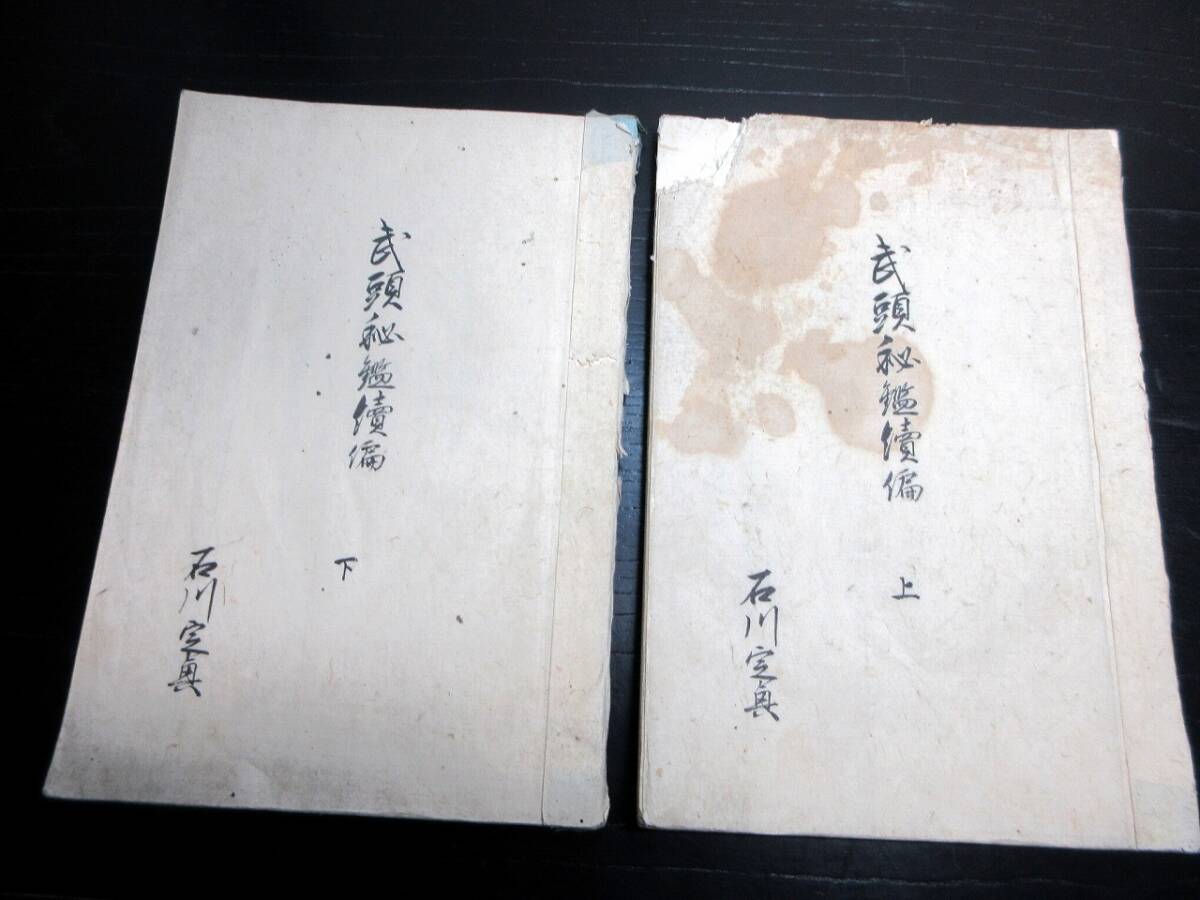 武頭秘鑑續編
上
石川定眞
武頭秘鑑續編
下
石川定眞